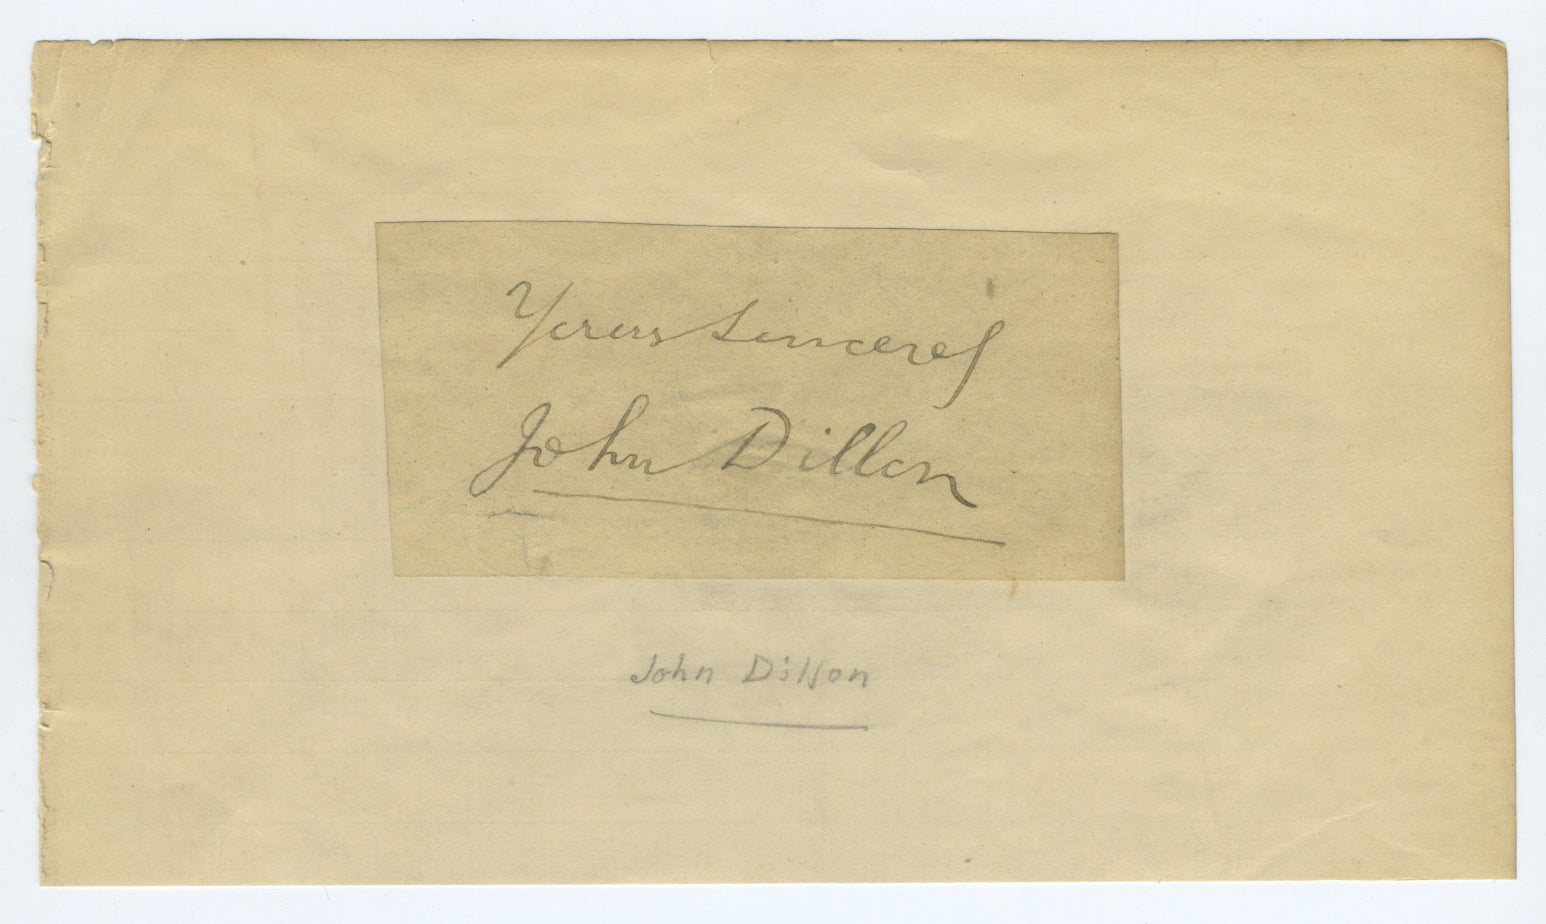 Yours sincerely
John Dillon
John Dillon